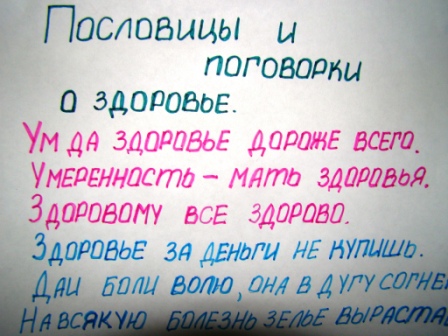 Пословицы и
поговорки
о здоровье.
Ум да здоровье дороже всего.
Умеренность – мать здоровья.
Здоровому все здорово.
Здоровье за деньги не купишь.
Даи боли волю, она в дугу согне
На всякую болезнь зелье выраста